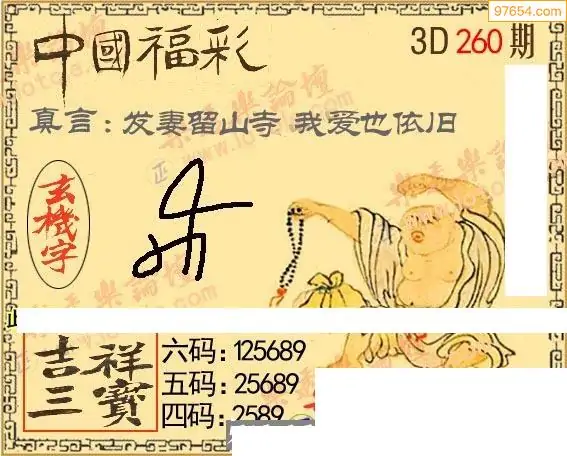 97654.com
中國福彩
3D 260 期
真言：发妻留山寺 我爱也依旧
玄機字
吉祥三寶
六码：125689
五码：25689
四码：2589